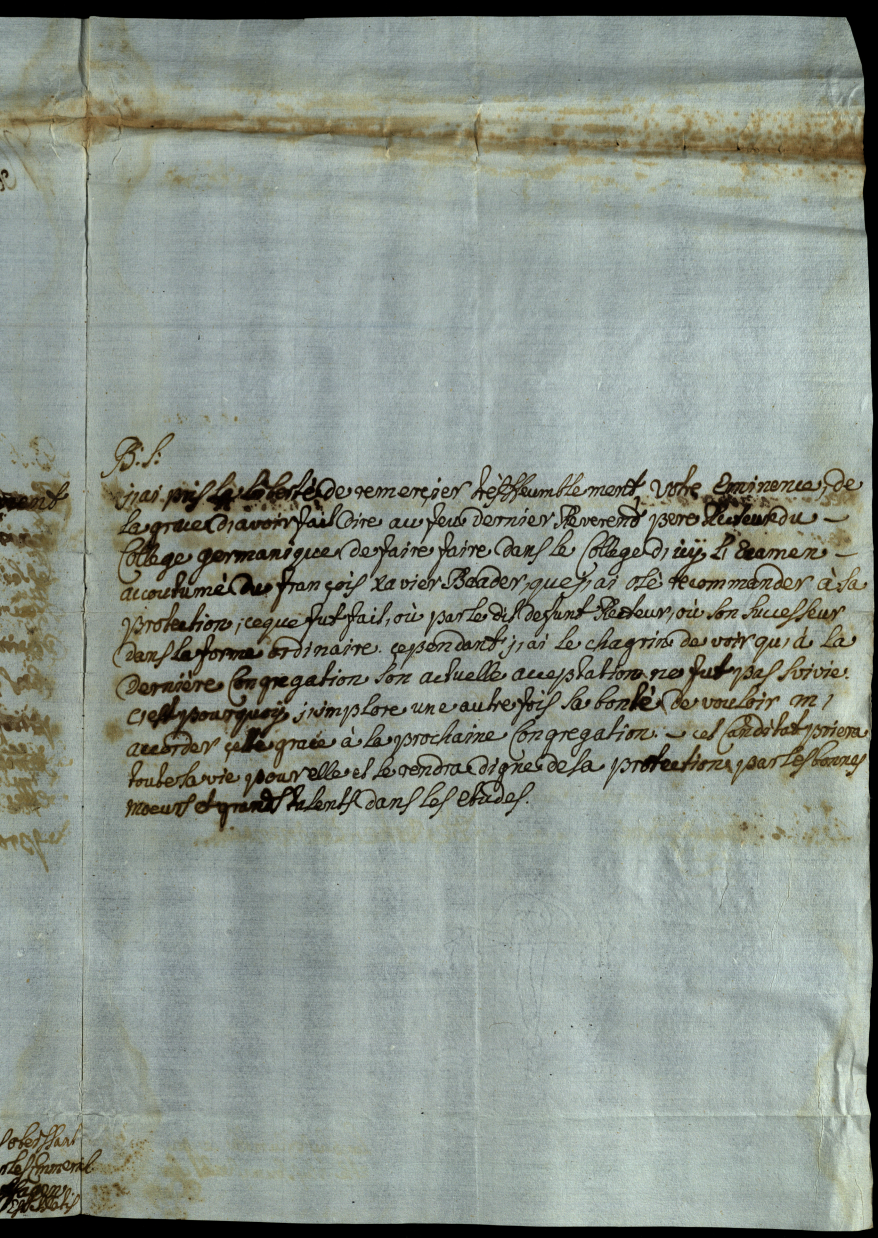 P: S:
j,ai pris la liberté de remerçier trèsheumblement, Votre Eminence, de
la grace d,avoir fait dire au feu dernier Reverend pere Recteur du -
College germanique de faire faire dans le College d,icÿ l,Examen -
accoutumé du françois Xavier Baader, que j,ai osé recommender à sa
protection, ce que fut fait, où par le dit defunt Recteur, où son successeur
dans la forme ordinaire. çependant j,ai le chagrin de voir qu,à la
dernière Congregation son actuelle acceptation ne fut pas suivie.
c,est pourquoÿ j,implore une autre fois sa bonté de vouloir m,
accorder çette grace à la prochaine Congregation. - cet Canditat priera
toute sa vie pour elle et se rendra digne de sa protection par ses bonnes
moeurs et grands talents dans les etudes.